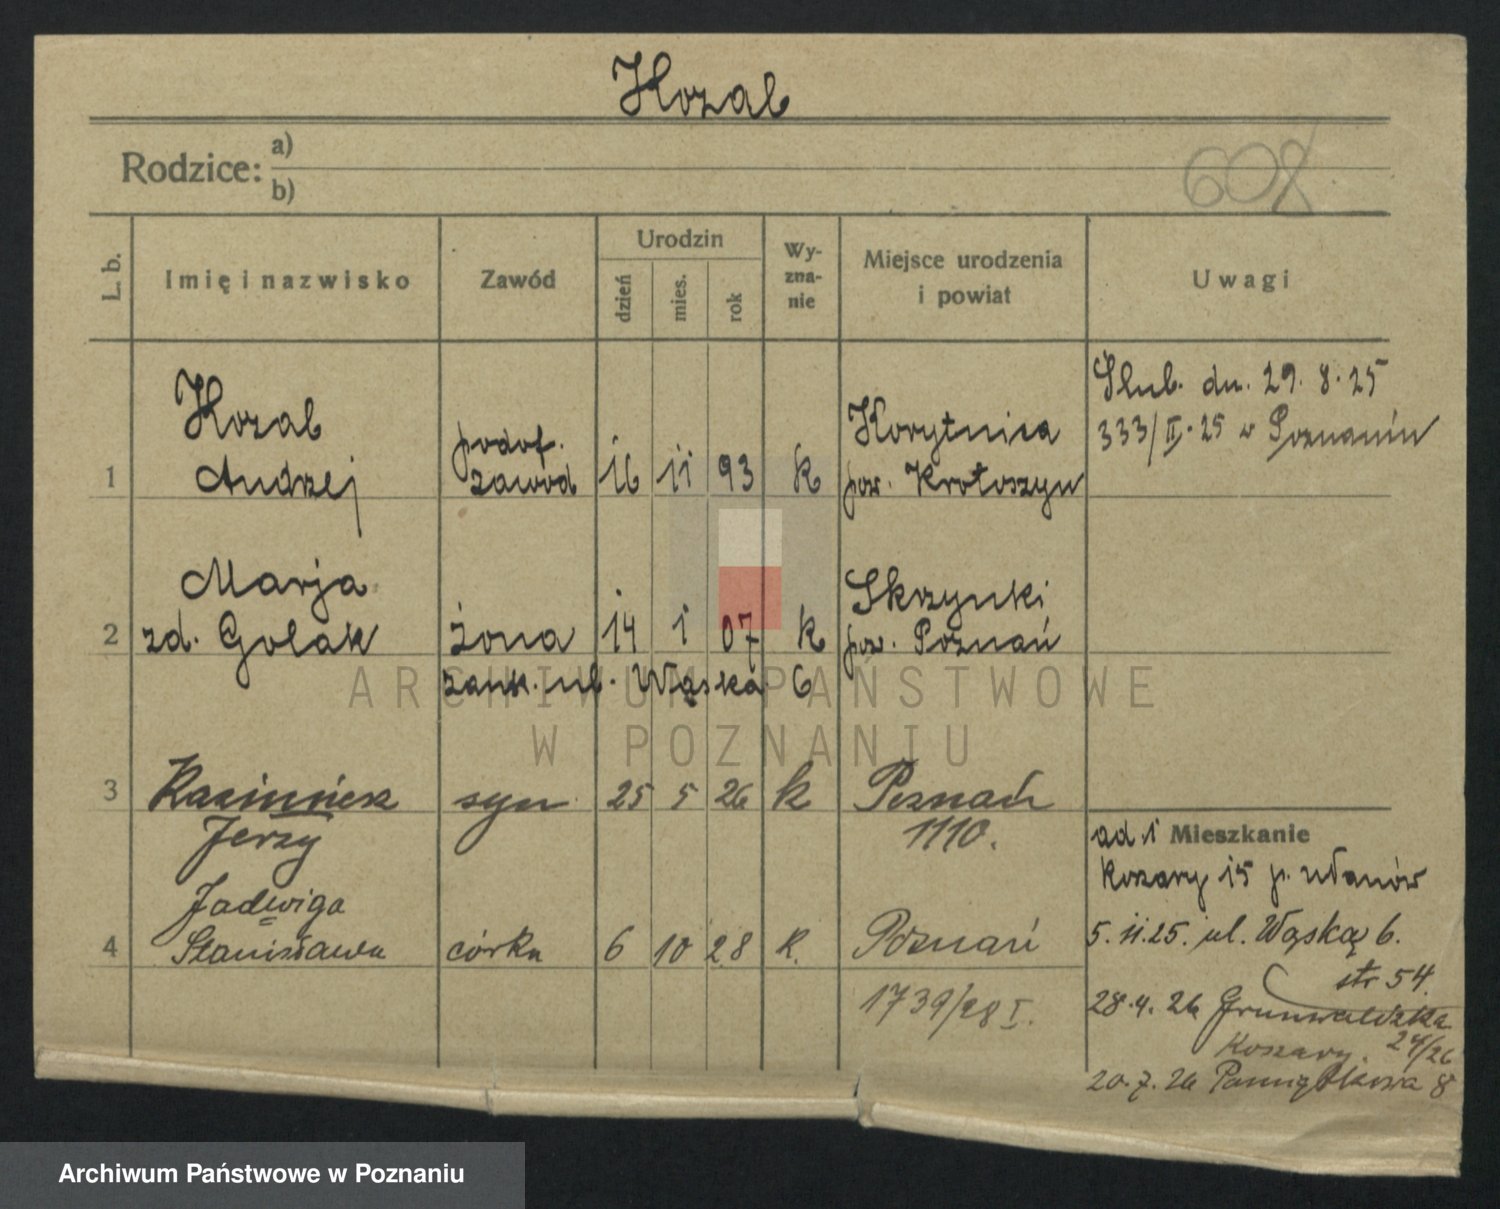 Kozal
Rodzice: a)
b)
608
L. b.
Imię i nazwisko
Zawód
Urodzin
dzień
mies.
rok
Wy-
zna-
nie
Miejsce urodzenia
i powiat
Uwagi
Kozal
Andrzej
podof.
zawod
16 11 93
k
Korytnica
pow. Krotoszyn
Ślub. dn. 29. 8. 25
333/II. 25 w Poznaniu
1
Marja
zd. Golak
żona
14 1 07
k
Skrzynki
pow. Poznań
2
zamk. ul. Wąska 6
ARCHIWUM PAŃSTWOWE
W POZNANIU
3
Kazimierz
Jerzy
syn
25 5 26
k
Poznań
1110.
ad 1 Mieszkanie
Koszary 15 p. ułanów
4
Jadwiga
Stanisława
córka
6 10 28
k.
Poznań
1739/28 I.
5. 11. 25. ul. Wąska 6.
str 54.
28. 4. 26 Grunwaldzka
Koszary. 24/26
20. 7. 26 Pamiątkowa 8
Archiwum Państwowe w Poznaniu